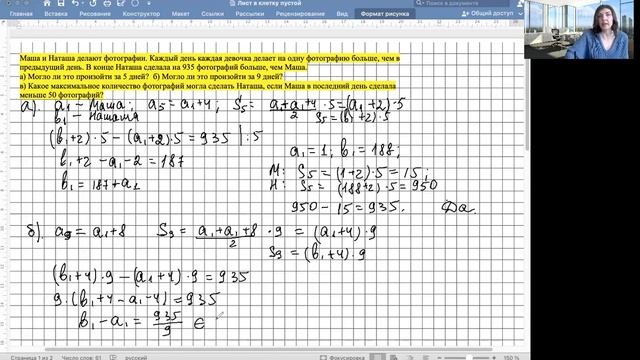 Лист в клетку пустой
Главная
Вставка
Рисование
Конструктор
Макет
Ссылки
Рассылки
Рецензирование
Вид
Формат рисунка
Общий доступ
Маша и Наташа делают фотографии. Каждый день каждая девочка делает на одну фотографию больше, чем в
предыдущий день. В конце Наташа сделала на 935 фотографий больше, чем Маша.
а) Могло ли это произойти за 5 дней? б) Могло ли это произойти за 9 дней?
в) Какое максимальное количество фотографий могла сделать Наташа, если Маша в последний день сделала
меньше 50 фотографий?
а). a₁ – Маша; a₅ = a₁+4; S₅ = (a₁+a₁+4)/2 · 5 = (a₁+2)·5
b₁ – Наташа S₅ = (b₁+2)·5
(b₁+2)·5 – (a₁+2)·5 = 935 | :5
b₁+2 – a₁ – 2 = 187
b₁ = 187 + a₁
a₁ = 1; b₁ = 188;
М: S₅ = (1+2)·5 = 15;
Н: S₅ = (188+2)·5 = 950
950 – 15 = 935. Да.
б). a₉ = a₁+8 S₉ = (a₁+a₁+8)/2 · 9 = (a₁+4)·9
S₉ = (b₁+4)·9
(b₁+4)·9 – (a₁+4)·9 = 935
9·(b₁+4–a₁–4) = 935
b₁–a₁ = 935/9 ∈
Страница 1 из 2
русский
Фокусировка
150 %